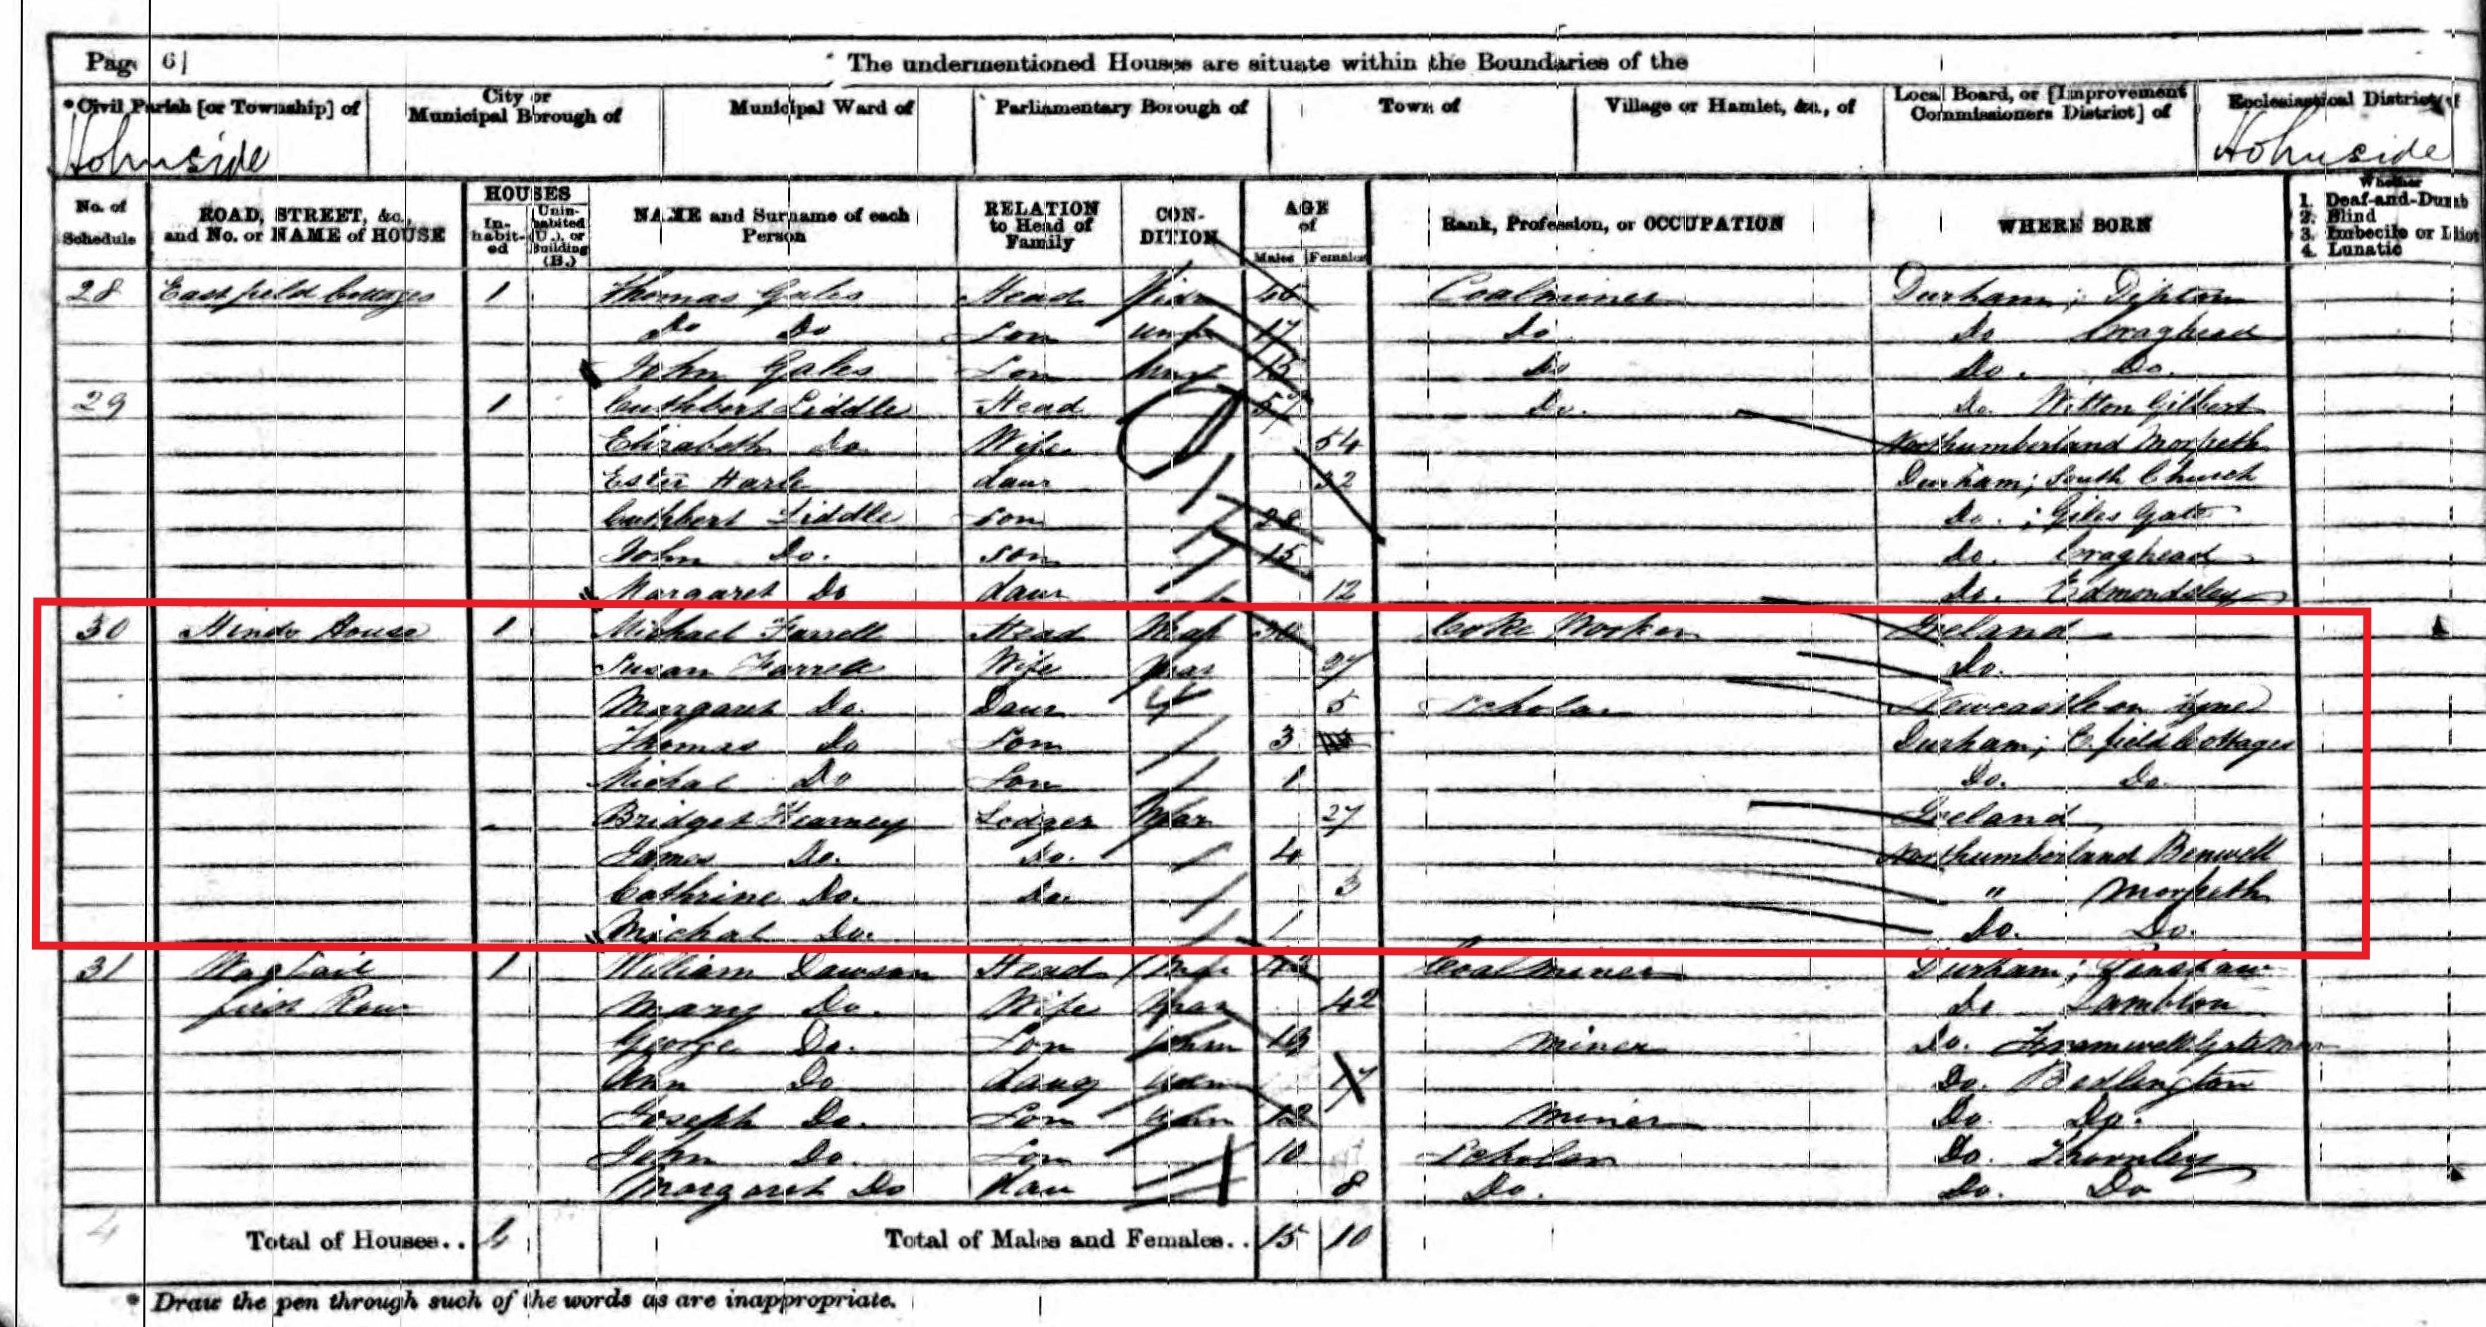 Page 61 The undermentioned Houses are situate within the Boundaries of the
*Civil Parish [or Township] of City or Municipal Borough of Municipal Ward of Parliamentary Borough of Town of Village or Hamlet, &c., of Local Board, or [Improvement Commissioners District] of Ecclesiastical District of
Holmside Holmside
No. of Schedule ROAD, STREET, &c., and No. or NAME of HOUSE HOUSES In-habit-ed Unin-habited (U.), or Building (B.) NAME and Surname of each Person RELATION to Head of Family CON-DITION AGE of Males Females Rank, Profession, or OCCUPATION WHERE BORN Whether 1. Deaf-and-Dumb 2. Blind 3. Imbecile or Idiot 4. Lunatic
28 Eastfield Cottages 1 Thomas Gales Head 46 Coalminer Durham; Dipton
Do Do Son Unm 17 Do Do Craghead
John Gales Son 15 Do Do. Do.
29 1 Cuthbert Liddle Head Do. Do. Witton Gilbert
Elizabeth Do Wife 54 Northumberland Morpeth
Ester Harle daur 32 Durham; South Church
Cuthbert Liddle son 28 Do. ; Giles Gate
John Do. son 15 Do. Craghead
Margaret Do daur 12 Do. Edmondsley
30 Hinds House 1 Michael Farrell Head Coke Worker Ireland
Susan Farrell Wife Mar 27 Do.
Margaret Do. Daur 5 Scholar Newcastle on Tyne
Thomas Do Son 3 Durham; E. field Cottages
Michal Do Son 1 Do. Do.
Bridget Kearney Lodger Mar 27 Ireland
James Do. Do. 4 Northumberland Benwell
Cathrine Do. Do. 3 " Morpeth
Michal Do. 1 Do. Do.
31 Wagtail 1 William Dawson Head 43 Coal Miner Durham; Penshaw
first Row Mary Do. Wife Mar 42 Do Lambton
George Do. Son Unm Miner Do. Framwellgate Moor
Ann Do daug Unm 17 Do. Bedlington
Joseph Do. Son Unm 12 Miner Do. Do.
John Do. Son 10 Scholar Do. Thornley
Margaret Do Dau 8 Do. Do. Do
4 Total of Houses.. 4 Total of Males and Females.. 15 10
* Draw the pen through such of the words as are inappropriate.